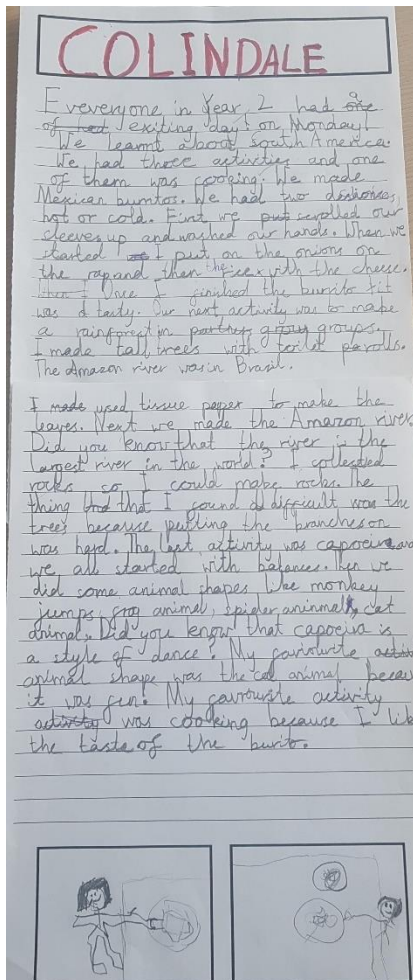 COLINDALE
Eveveryone in Year 2 had a
exiting day! on Monday!
We learnt about South America.
We had three activities and one
of them was cooking. We made
Mexican burritos. We had two
hot or cold. First we scrolled our
sleeves up and washed our hands. When we
started I put on the onions on
the rap and then the with the cheese.
Once I finished the burrito it
was tasty. Our next activity was to make
a rainforest in groups.
I made tall trees with toilet parolls.
The Amazon river was in Brasil.
I used tissue paper to make the
leaves. Next we made the Amazon river
Did you know that the river is the
largest river in the world? I collected
rocks so I could make rocks. The
thing that I found difficult was the
trees because putting the branches on
was hard. The last activity was capoeira and
we all started with balances. we
did some animal shapes like monkey
jumps, frog animal, spider aninmal, cat
animal. Did you know that capoeiva is
a style of dance? My favioutite
animal shape was the cat animal becau
it was fun! My favrouite activity
was cooking because I lik
the taste of the burito.